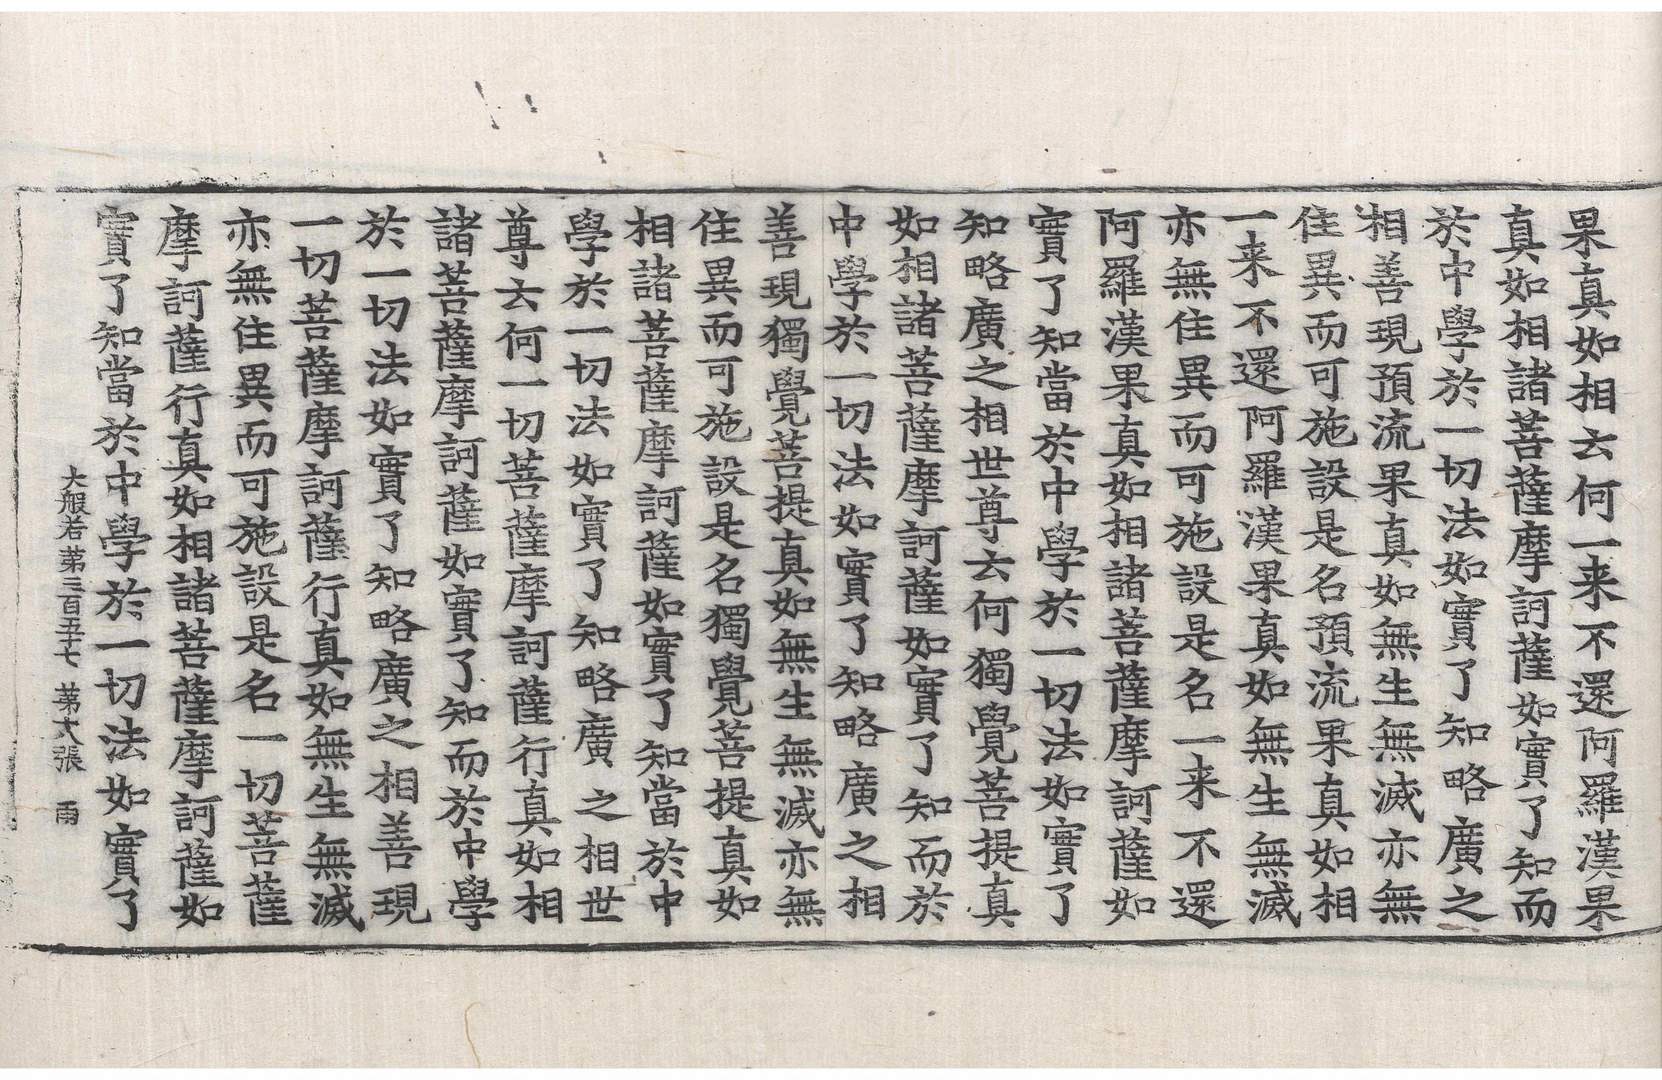 果真如相云何一来不還阿羅漢果
真如相諸菩薩摩訶薩如實了知而
於中學於一切法如實了知略廣之
相善現預流果真如無生無滅亦無
住異而可施設是名預流果真如相
一来不還阿羅漢果真如無生無滅
亦無住異而可施設是名一来不還
阿羅漢果真如相諸菩薩摩訶薩如
實了知當於中學於一切法如實了
知略廣之相世尊云何獨覺菩提真
如相諸菩薩摩訶薩如實了知而於
中學於一切法如實了知略廣之相
善現獨覺菩提真如無生無滅亦無
住異而可施設是名獨覺菩提真如
相諸菩薩摩訶薩如實了知當於中
學於一切法如實了知略廣之相世
尊云何一切菩薩摩訶薩行真如相
諸菩薩摩訶薩如實了知而於中學
於一切法如實了知略廣之相善現
一切菩薩摩訶薩行真如無生無滅
亦無住異而可施設是名一切菩薩
摩訶薩行真如相諸菩薩摩訶薩如
實了知當於中學於一切法如實了
大般若第三百五十七 第六張 雨